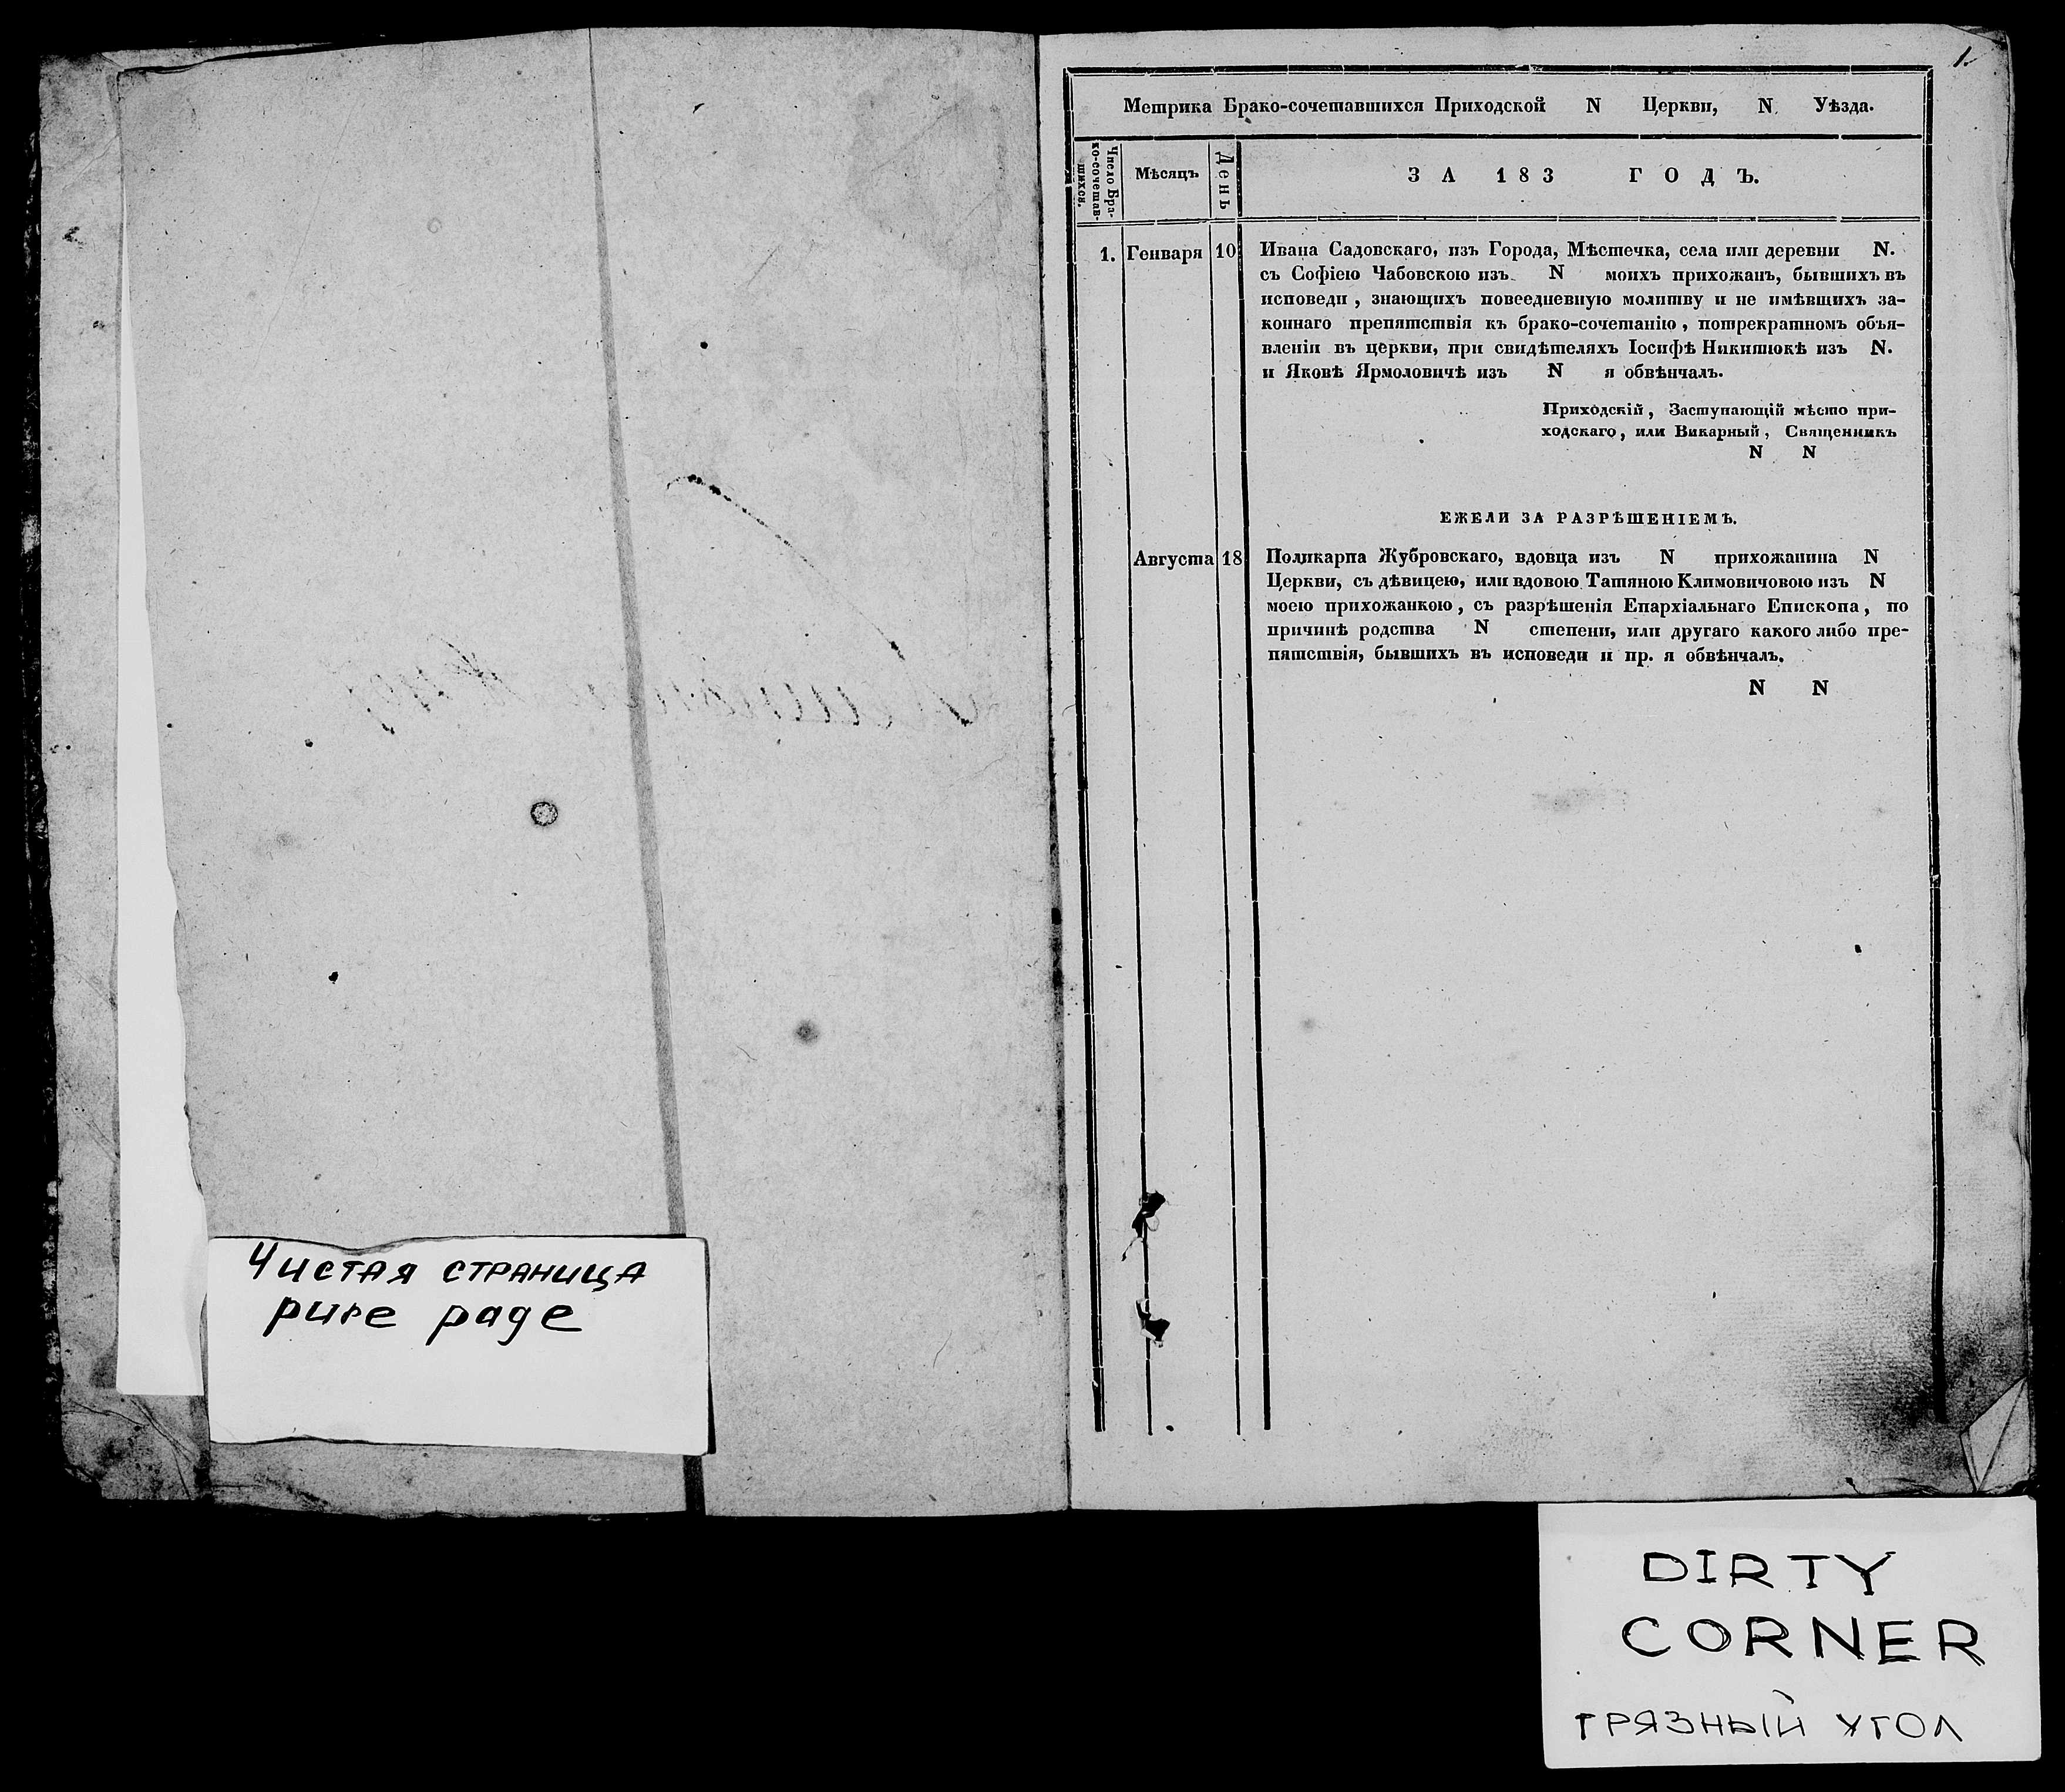 Чистая страница
pure page
1.
Метрика Брако-сочетавшихся Приходской N Церкви, N. Уѣзда.
Число Бра-
ко-сочетав-
шихся.
Мѣсяцъ
День
ЗА 183 ГОДЪ.
1. Генваря 10 Ивана Садовскаго, изъ Города, Мѣстечка, села или деревни N.
съ Софіею Чабовскою изъ N моихъ прихожанъ, бывшихъ въ
исповеди, знающихъ повседневную молитву и не имѣвшихъ за-
коннаго препятствія къ брако-сочетанію, потрекратномъ объя-
вленіи въ церкви, при свидѣтеляхъ Іосифѣ Никитюкѣ изъ N.
и Яковѣ Ярмоловичѣ изъ N я обвѣнчалъ.
Приходскій, Заступающій мѣсто при-
ходскаго, или Викарный, Священникъ
N N
ЕЖЕЛИ ЗА РАЗРѢШЕНІЕМЪ.
Августа 18 Поликарпа Жубровскаго, вдовца изъ N прихожанина N
Церкви, съ дѣвицею, или вдовою Татяною Климовичовою изъ N
моею прихожанкою, съ разрѣшенія Епархіальнаго Епископа, по
причинѣ родства N степени, или другаго какого либо пре-
пятствія, бывшихъ въ исповеди и пр. я обвѣнчалъ.
N N
DIRTY
CORNER
ГРЯЗНЫЙ УГОЛ